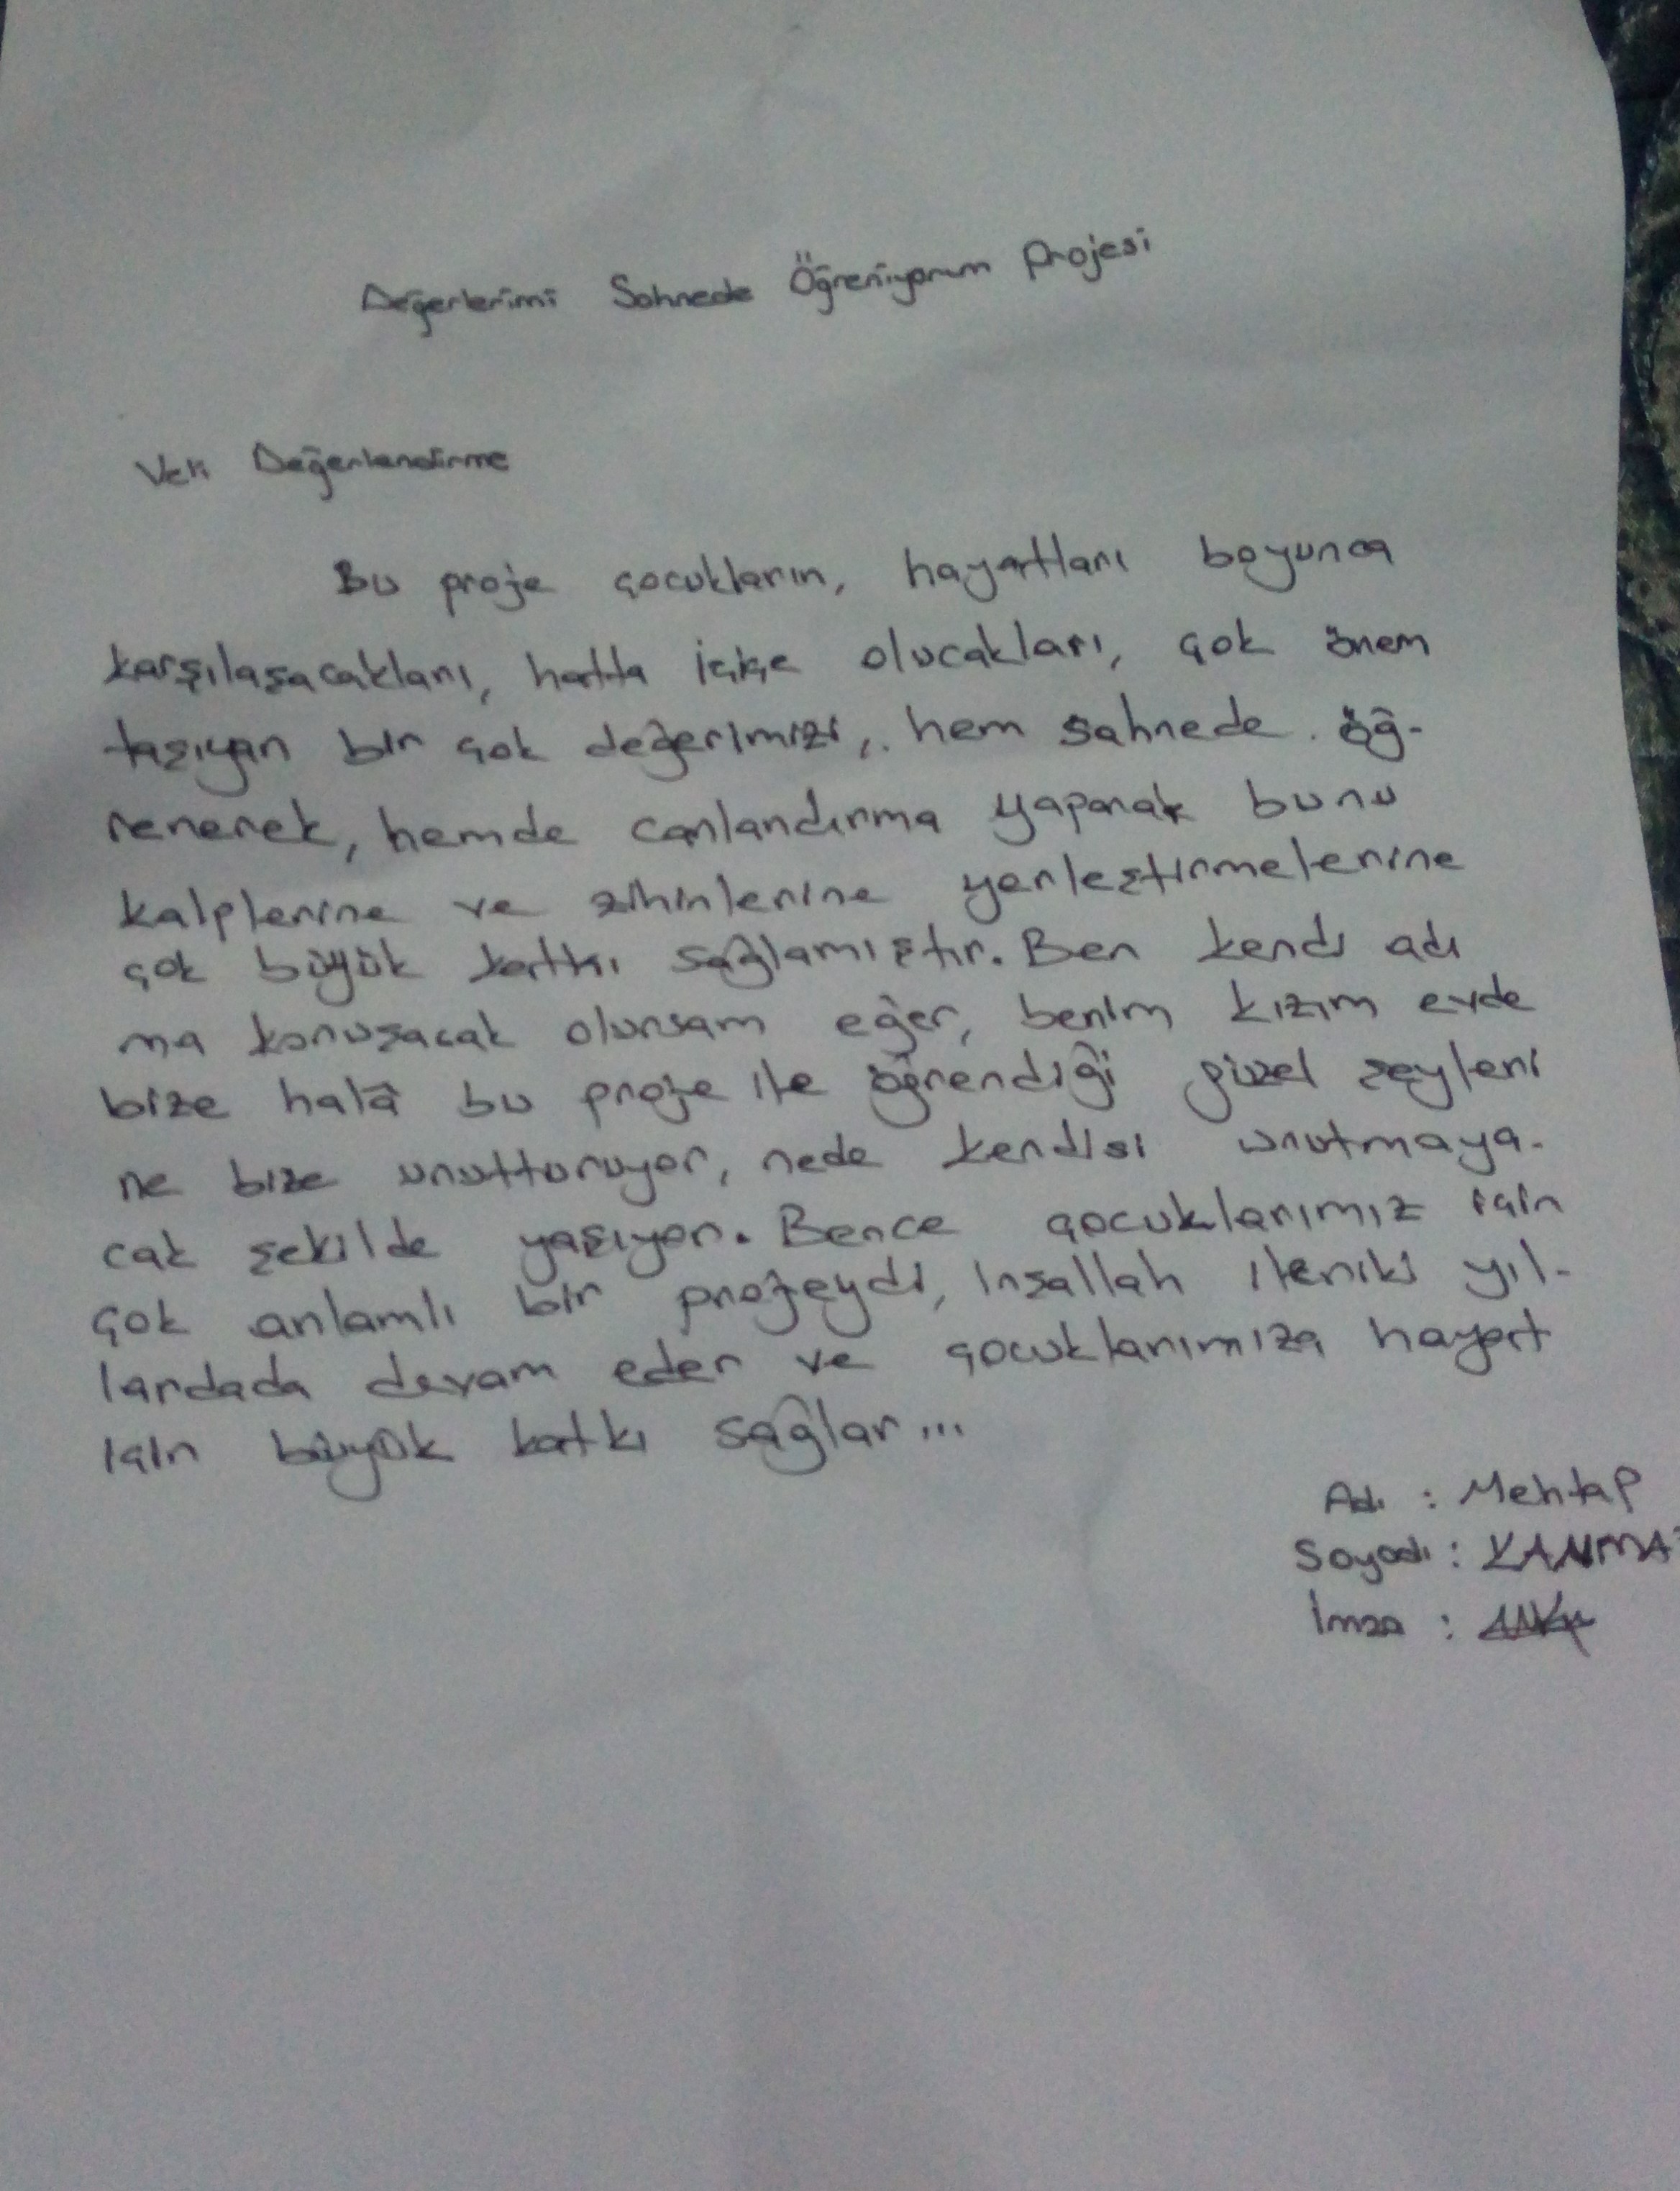 Değerlerimi Sahnede Öğreniyorum Projesi
Veli Değerlendirme
Bu proje çocukların, hayatları boyunca
karşılaşacakları, hatta içiçe olucakları, çok önem
taşıyan bir çok değerimizi, hem sahnede öğ-
renerek, hemde canlandırma yaparak bunu
kalplerine ve zihinlerine yerleştirmelerine
çok büyük katkı sağlamıştır. Ben kendi adı
ma konuşacak olursam eğer, benim kızım evde
bize halâ bu proje ile öğrendiği güzel şeyleri
ne bize unutturuyor, nede kendisi unutmaya-
cak şekilde yaşıyor. Bence çocuklarımız için
çok anlamlı bir projeydi, inşallah ileriki yıl-
lardada devam eder ve çocuklarımıza hayat
için büyük katkı sağlar...
Adı : Mehtap
Soyadı :
İmza :